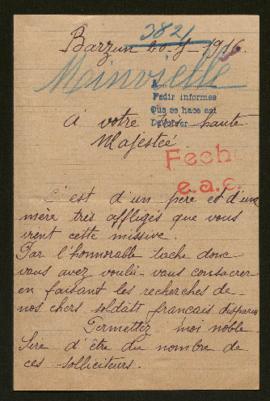 3821
Barzun 20-7-1916.
Mainvielle
Pedir informes
Que se hace así
Devolver
A votre très haute
Majesteé
Fech
e.a.c.
C'est d'un père et d'une
mère très affligés que vous
vient cette missive.
Par l'honorable tache donc
vous avez voulu-vous consacrer
en faisant les recherches de-
nos chers soldats français disparus
Permettez moi noble
Sire d'être du nombre de
ces solliciteurs.